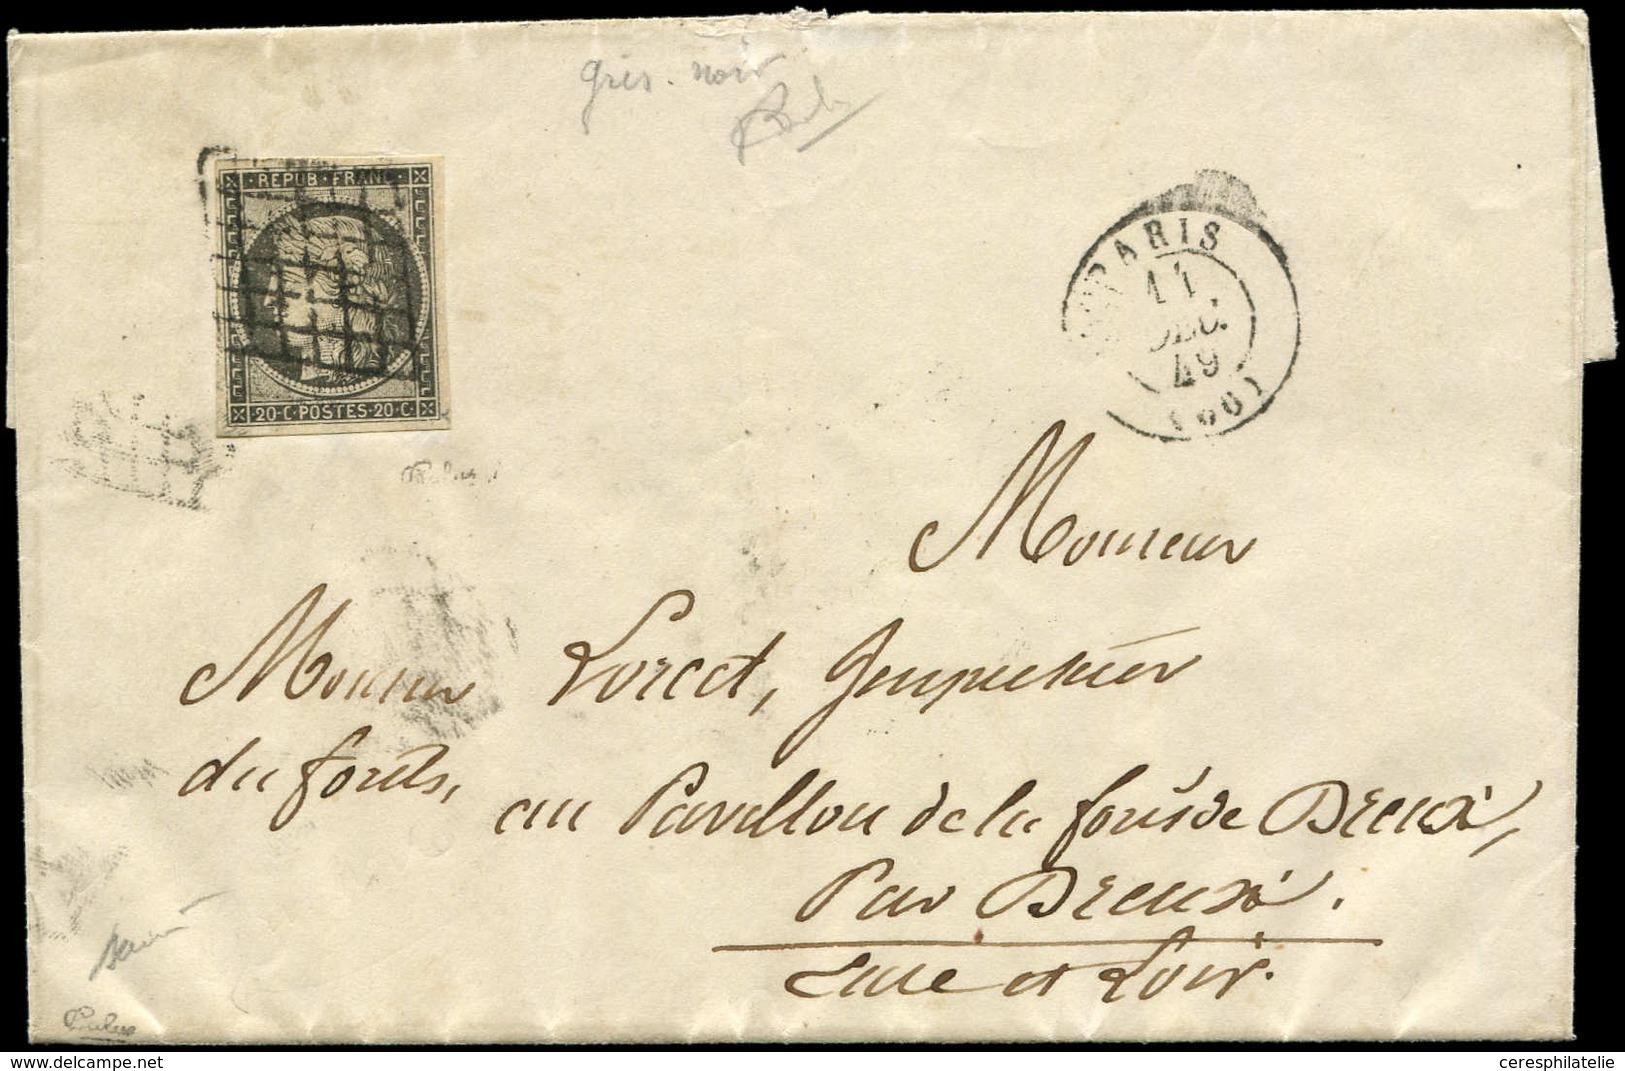 gris. noir
REPUB · FRANC
20 · C · POSTES · 20 · C ·
PARIS
11
DEC.
49
(60)
Monsieur
Monsieur Lorcet, Inspecteur
du forêts, au Pavillon de la forêt de Dreux,
Par Dreux.
Eure et Loir.
ceresphilatelie